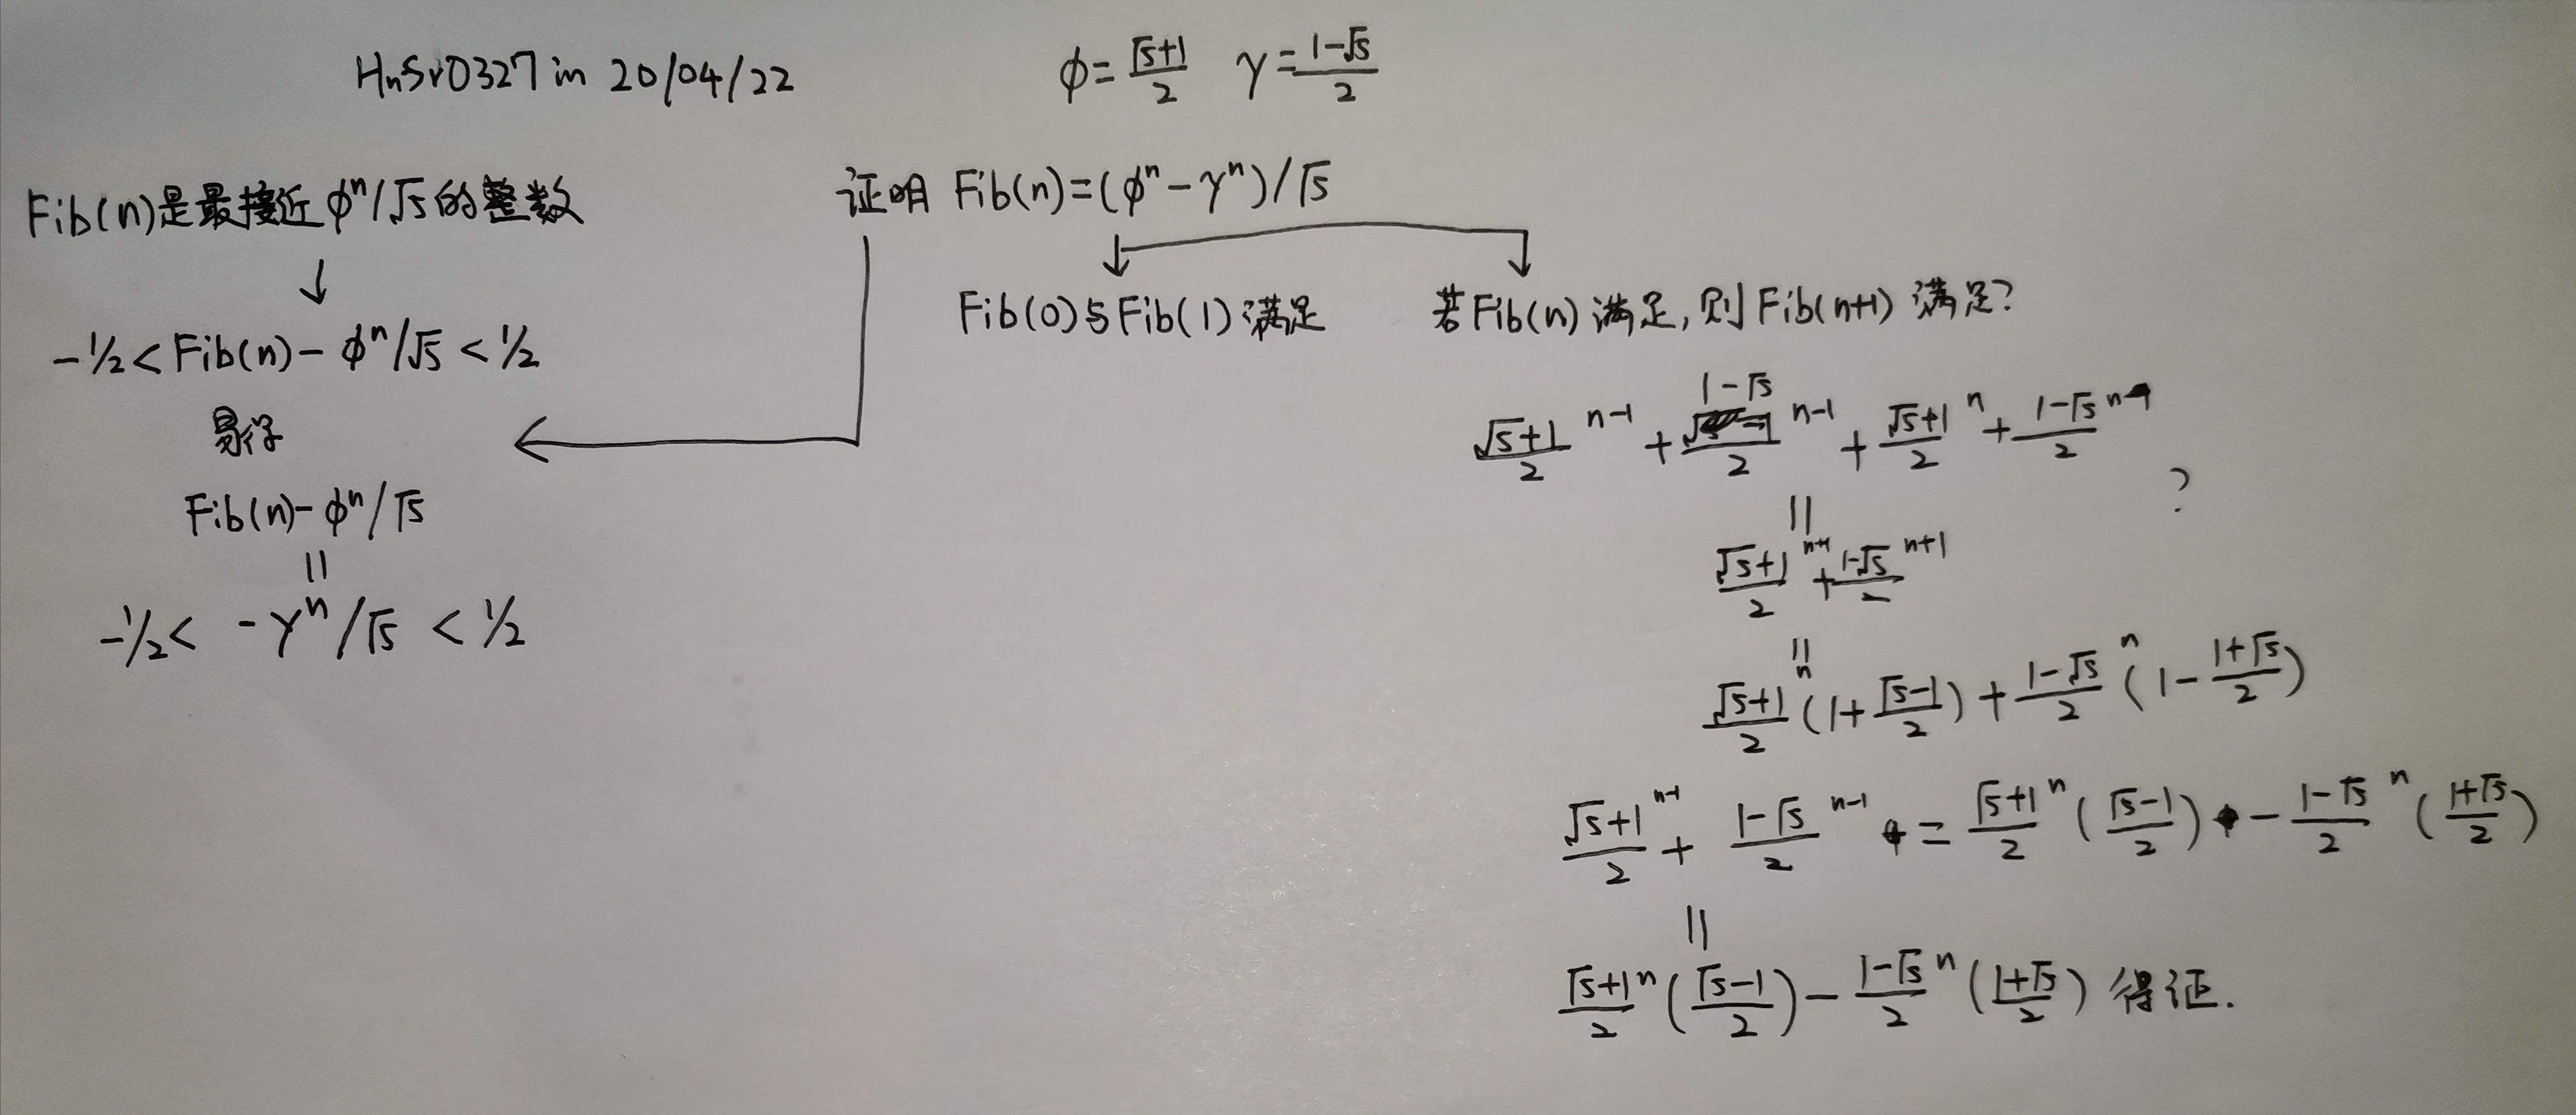 HnSr0327 in 20/04/22
φ=(√5+1)/2 γ=(1-√5)/2
Fib(n)是最接近φⁿ/√5的整数
↓
-1/2<Fib(n)-φⁿ/√5<1/2
易得
Fib(n)-φⁿ/√5
||
-1/2< -γⁿ/√5 <1/2
证明 Fib(n)=(φⁿ-γⁿ)/√5
Fib(0)与Fib(1)满足
若Fib(n)满足,则Fib(n+1)满足?
(√5+1)/2 ⁿ⁻¹ + (1-√5)/2 ⁿ⁻¹ + (√5+1)/2 ⁿ + (1-√5)/2 ⁿ
|| ?
(√5+1)/2 ⁿ⁺¹ + (1-√5)/2 ⁿ⁺¹
||
(√5+1)/2 ⁿ (1+(√5-1)/2) + (1-√5)/2 ⁿ (1-(1+√5)/2)
(√5+1)/2 ⁿ⁻¹ + (1-√5)/2 ⁿ⁻¹ = (√5+1)/2 ⁿ ((√5-1)/2) - (1-√5)/2 ⁿ ((1+√5)/2)
||
(√5+1)/2 ⁿ ((√5-1)/2) - (1-√5)/2 ⁿ ((1+√5)/2) 得证.